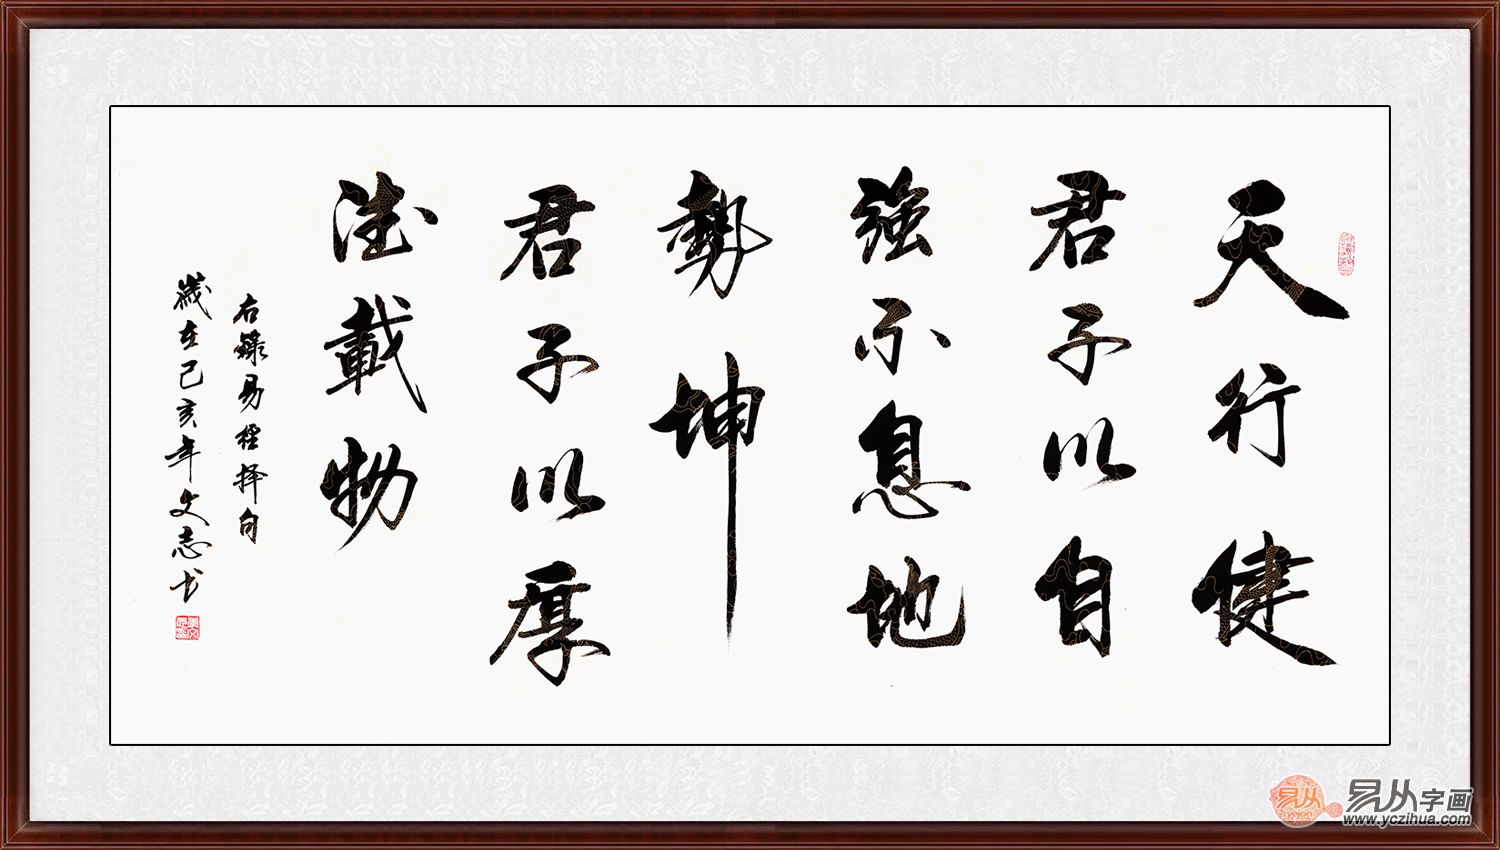 天行健
君子以自
強不息地
勢坤
君子以厚
德載物
右錄易經择句
歲在己亥年文志书
易从字画
www.yczihua.com